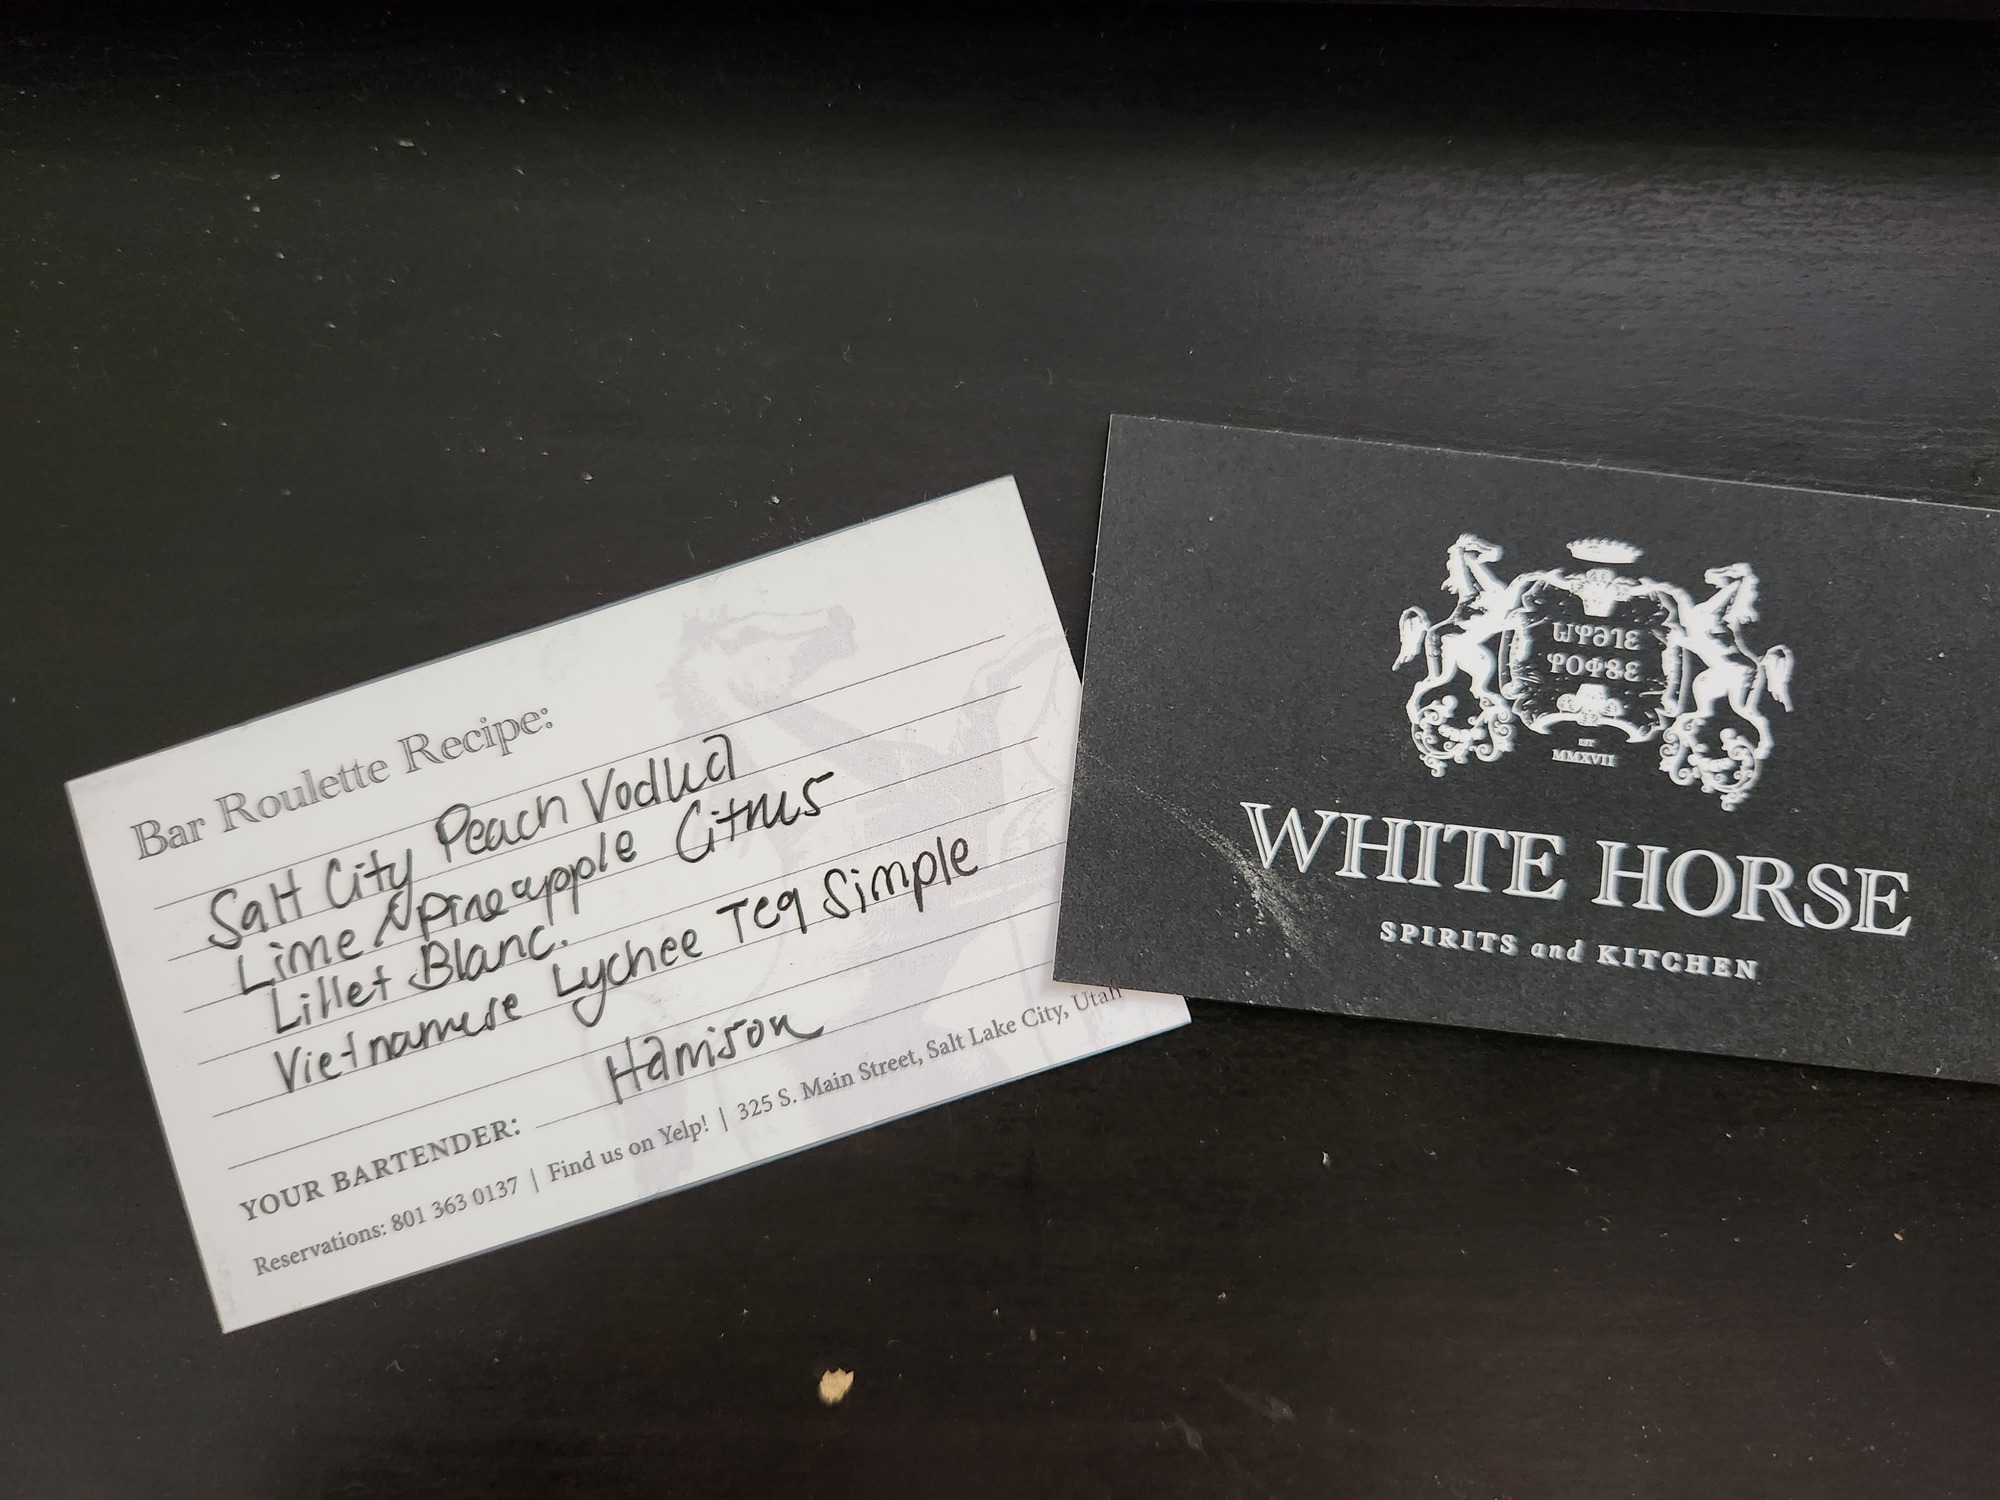 Bar Roulette Recipe:
Salt City Peach Vodka
Lime & Pineapple Citrus
Lillet Blanc.
Vietnamese Lychee Tea Simple
YOUR BARTENDER: Harrison
Reservations: 801 363 0137 | Find us on Yelp! | 325 S. Main Street, Salt Lake City, Utah
EST
MMXVII
WHITE HORSE
SPIRITS and KITCHEN